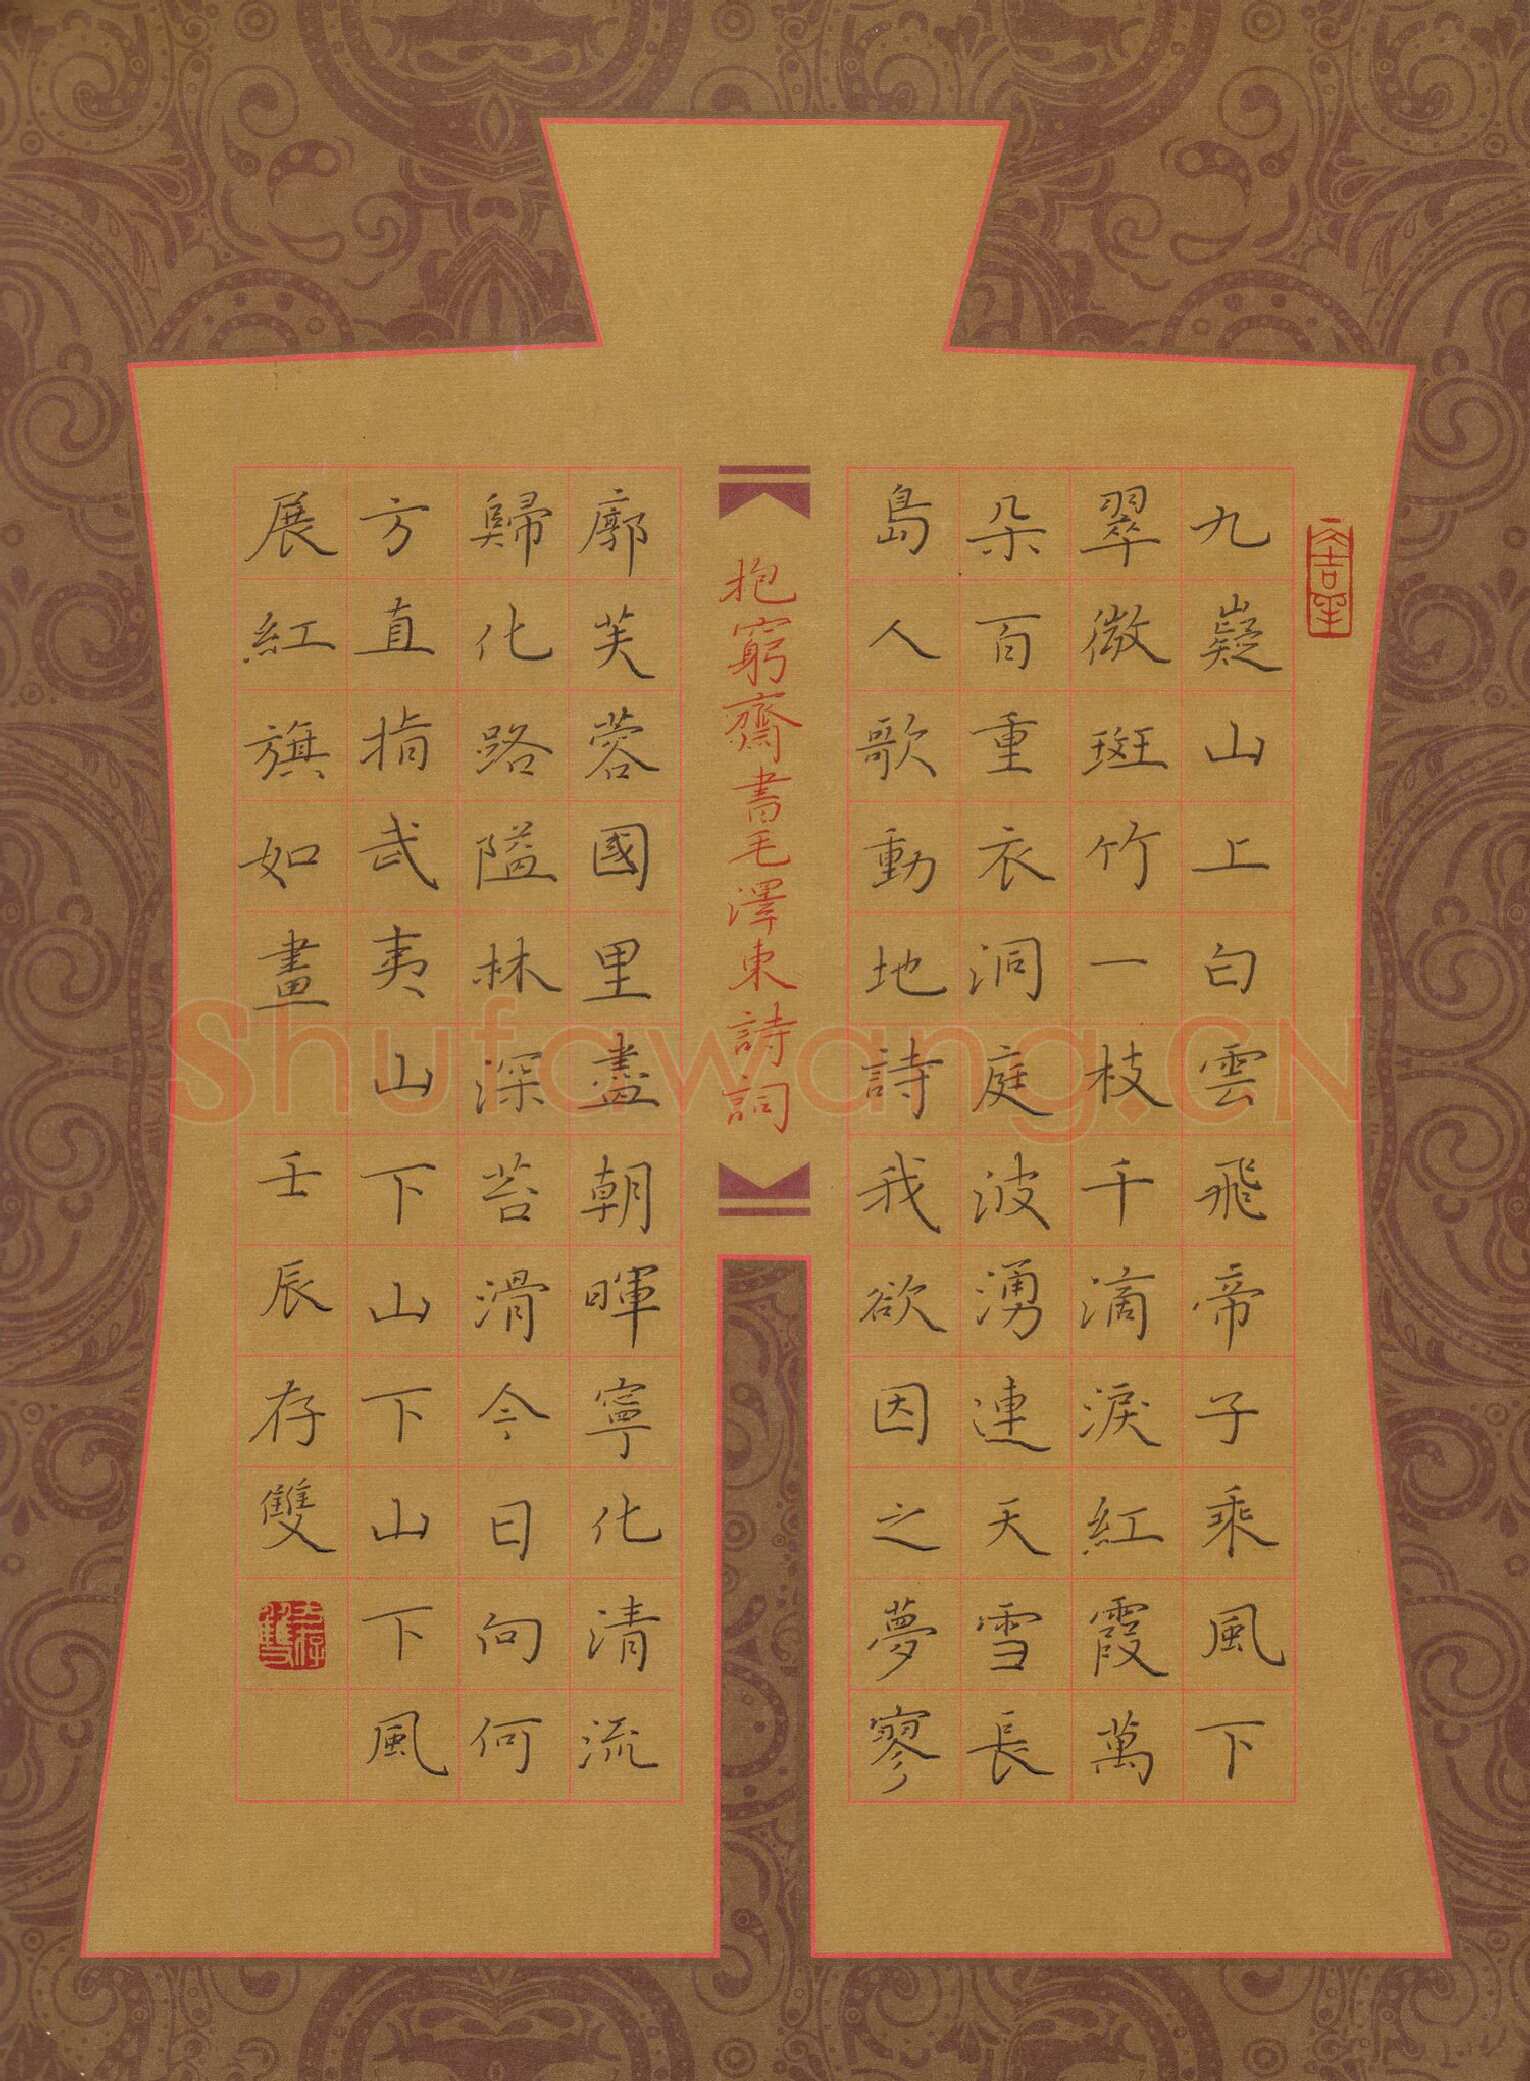 九嶷山上白雲飛帝子乘風下
翠微斑竹一枝千滴淚紅霞萬
朵百重衣洞庭波湧連天雪長
島人歌動地詩我欲因之夢寥
抱窮齋書毛澤東詩詞
廓芙蓉國里盡朝暉寧化清流
歸化路隘林深苔滑今日向何
方直指武夷山下山下山下風
展紅旗如畫 壬辰存雙
Shufawang.CN